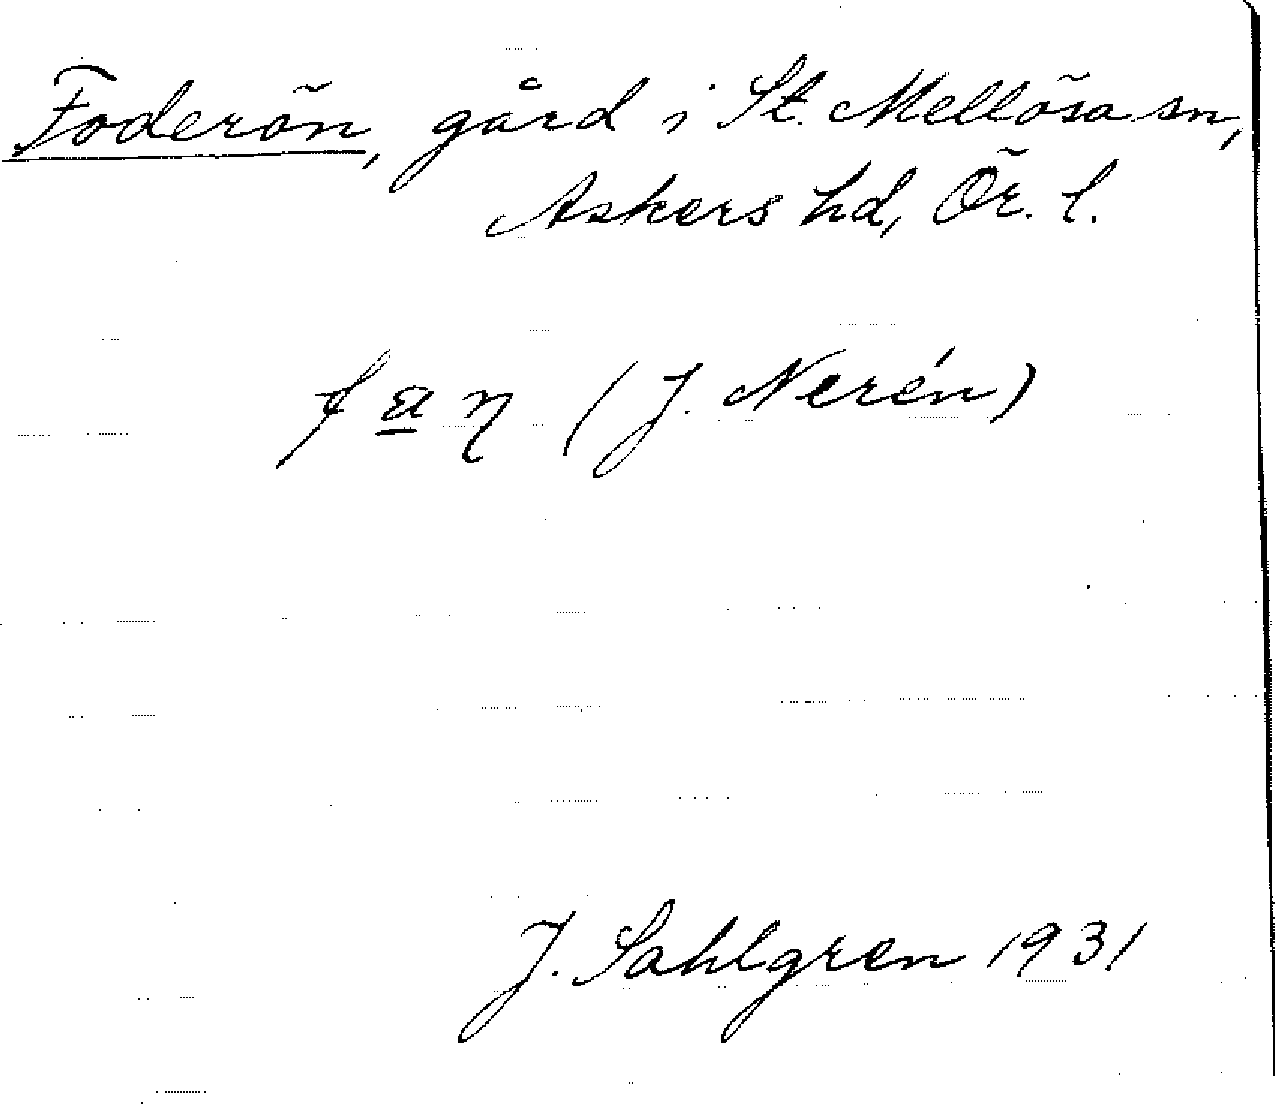 Foderön, gård i St. Mellösa sn,
Askers hd, Ör. l.
f a̲ η (J. Nerén)
J. Sahlgren 1931